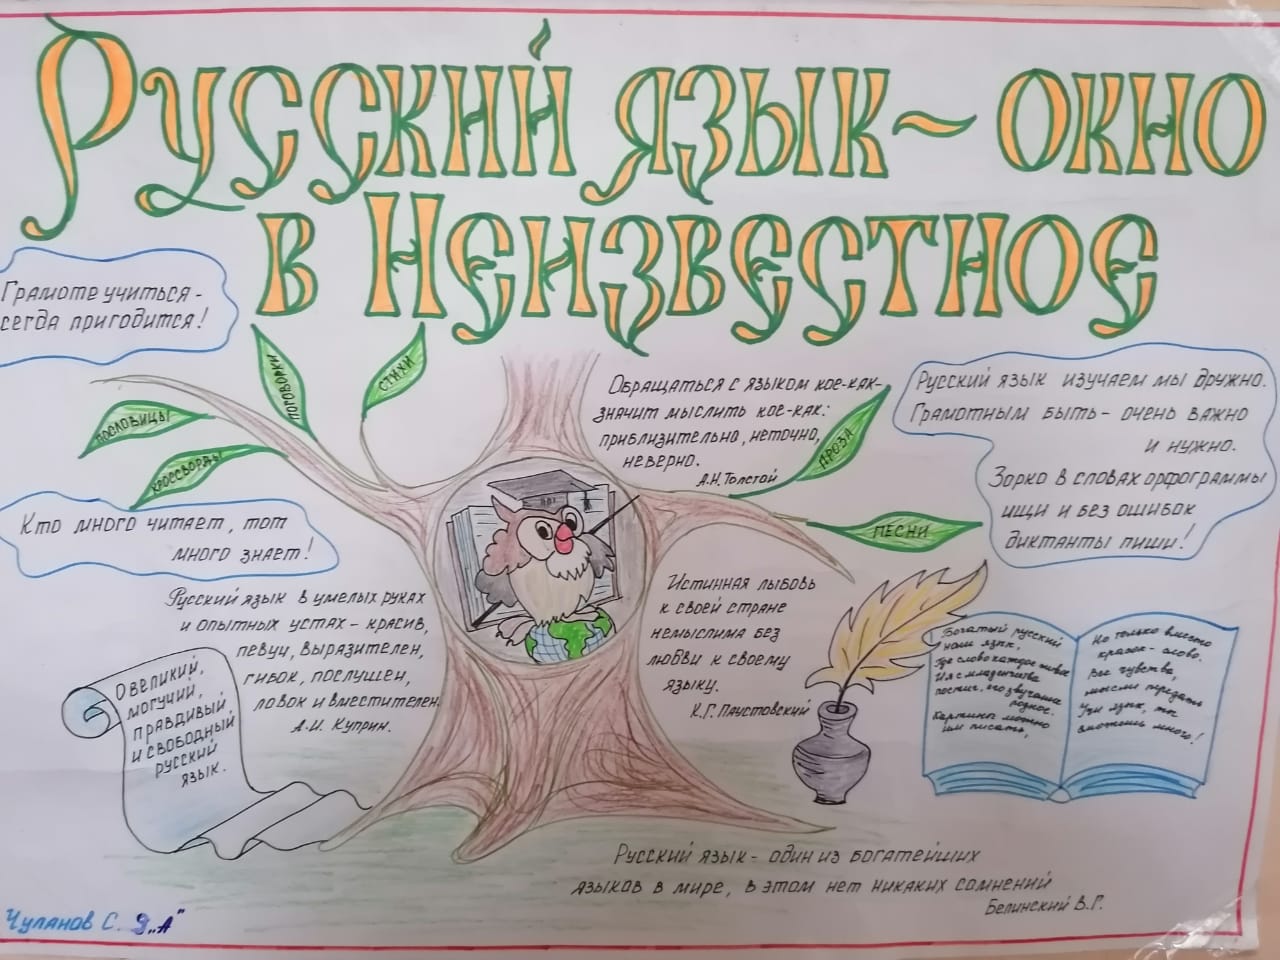 Русский язык ~ окно
в Неизвестное
Грамоте учиться -
сегда пригодится!
ПОСЛОВИЦЫ
ПОГОВОРКИ
СТИХИ
КРОССВОРДЫ
Кто много читает, тот
много знает!
Обращаться с языком кое-как-
значит мыслить кое-как:
приблизительно, неточно,
неверно.
А.Н.Толстой
ПРОЗА
ПЕСНИ
Русский язык изучаем мы дружно.
Грамотным быть - очень важно
и нужно.
Зорко в словах орфограммы
ищи и без ошибок
диктанты пиши!
Русский язык в умелых руках
и опытных устах - красив,
певуч, выразителен,
гибок, послушен,
ловок и вместителен.
А.И. Куприн.
О великий,
могучий,
правдивый
и свободный
русский
язык.
Истинная любовь
к своей стране
немыслима без
любви к своему
языку.
К.Г. Паустовский
Богатый русский
наш язык,
Где слово каждое живое
И я с младенчества
постиг, его звучание
родное.
Картины можно
им писать,
Но только вместо
красок - слово.
Все чувства,
мысли передать
Учи язык, ты
сможешь много!
Русский язык - один из богатейших
языков в мире, в этом нет никаких сомнений
Белинский В.Г.
Чуланов С. 9 „А"